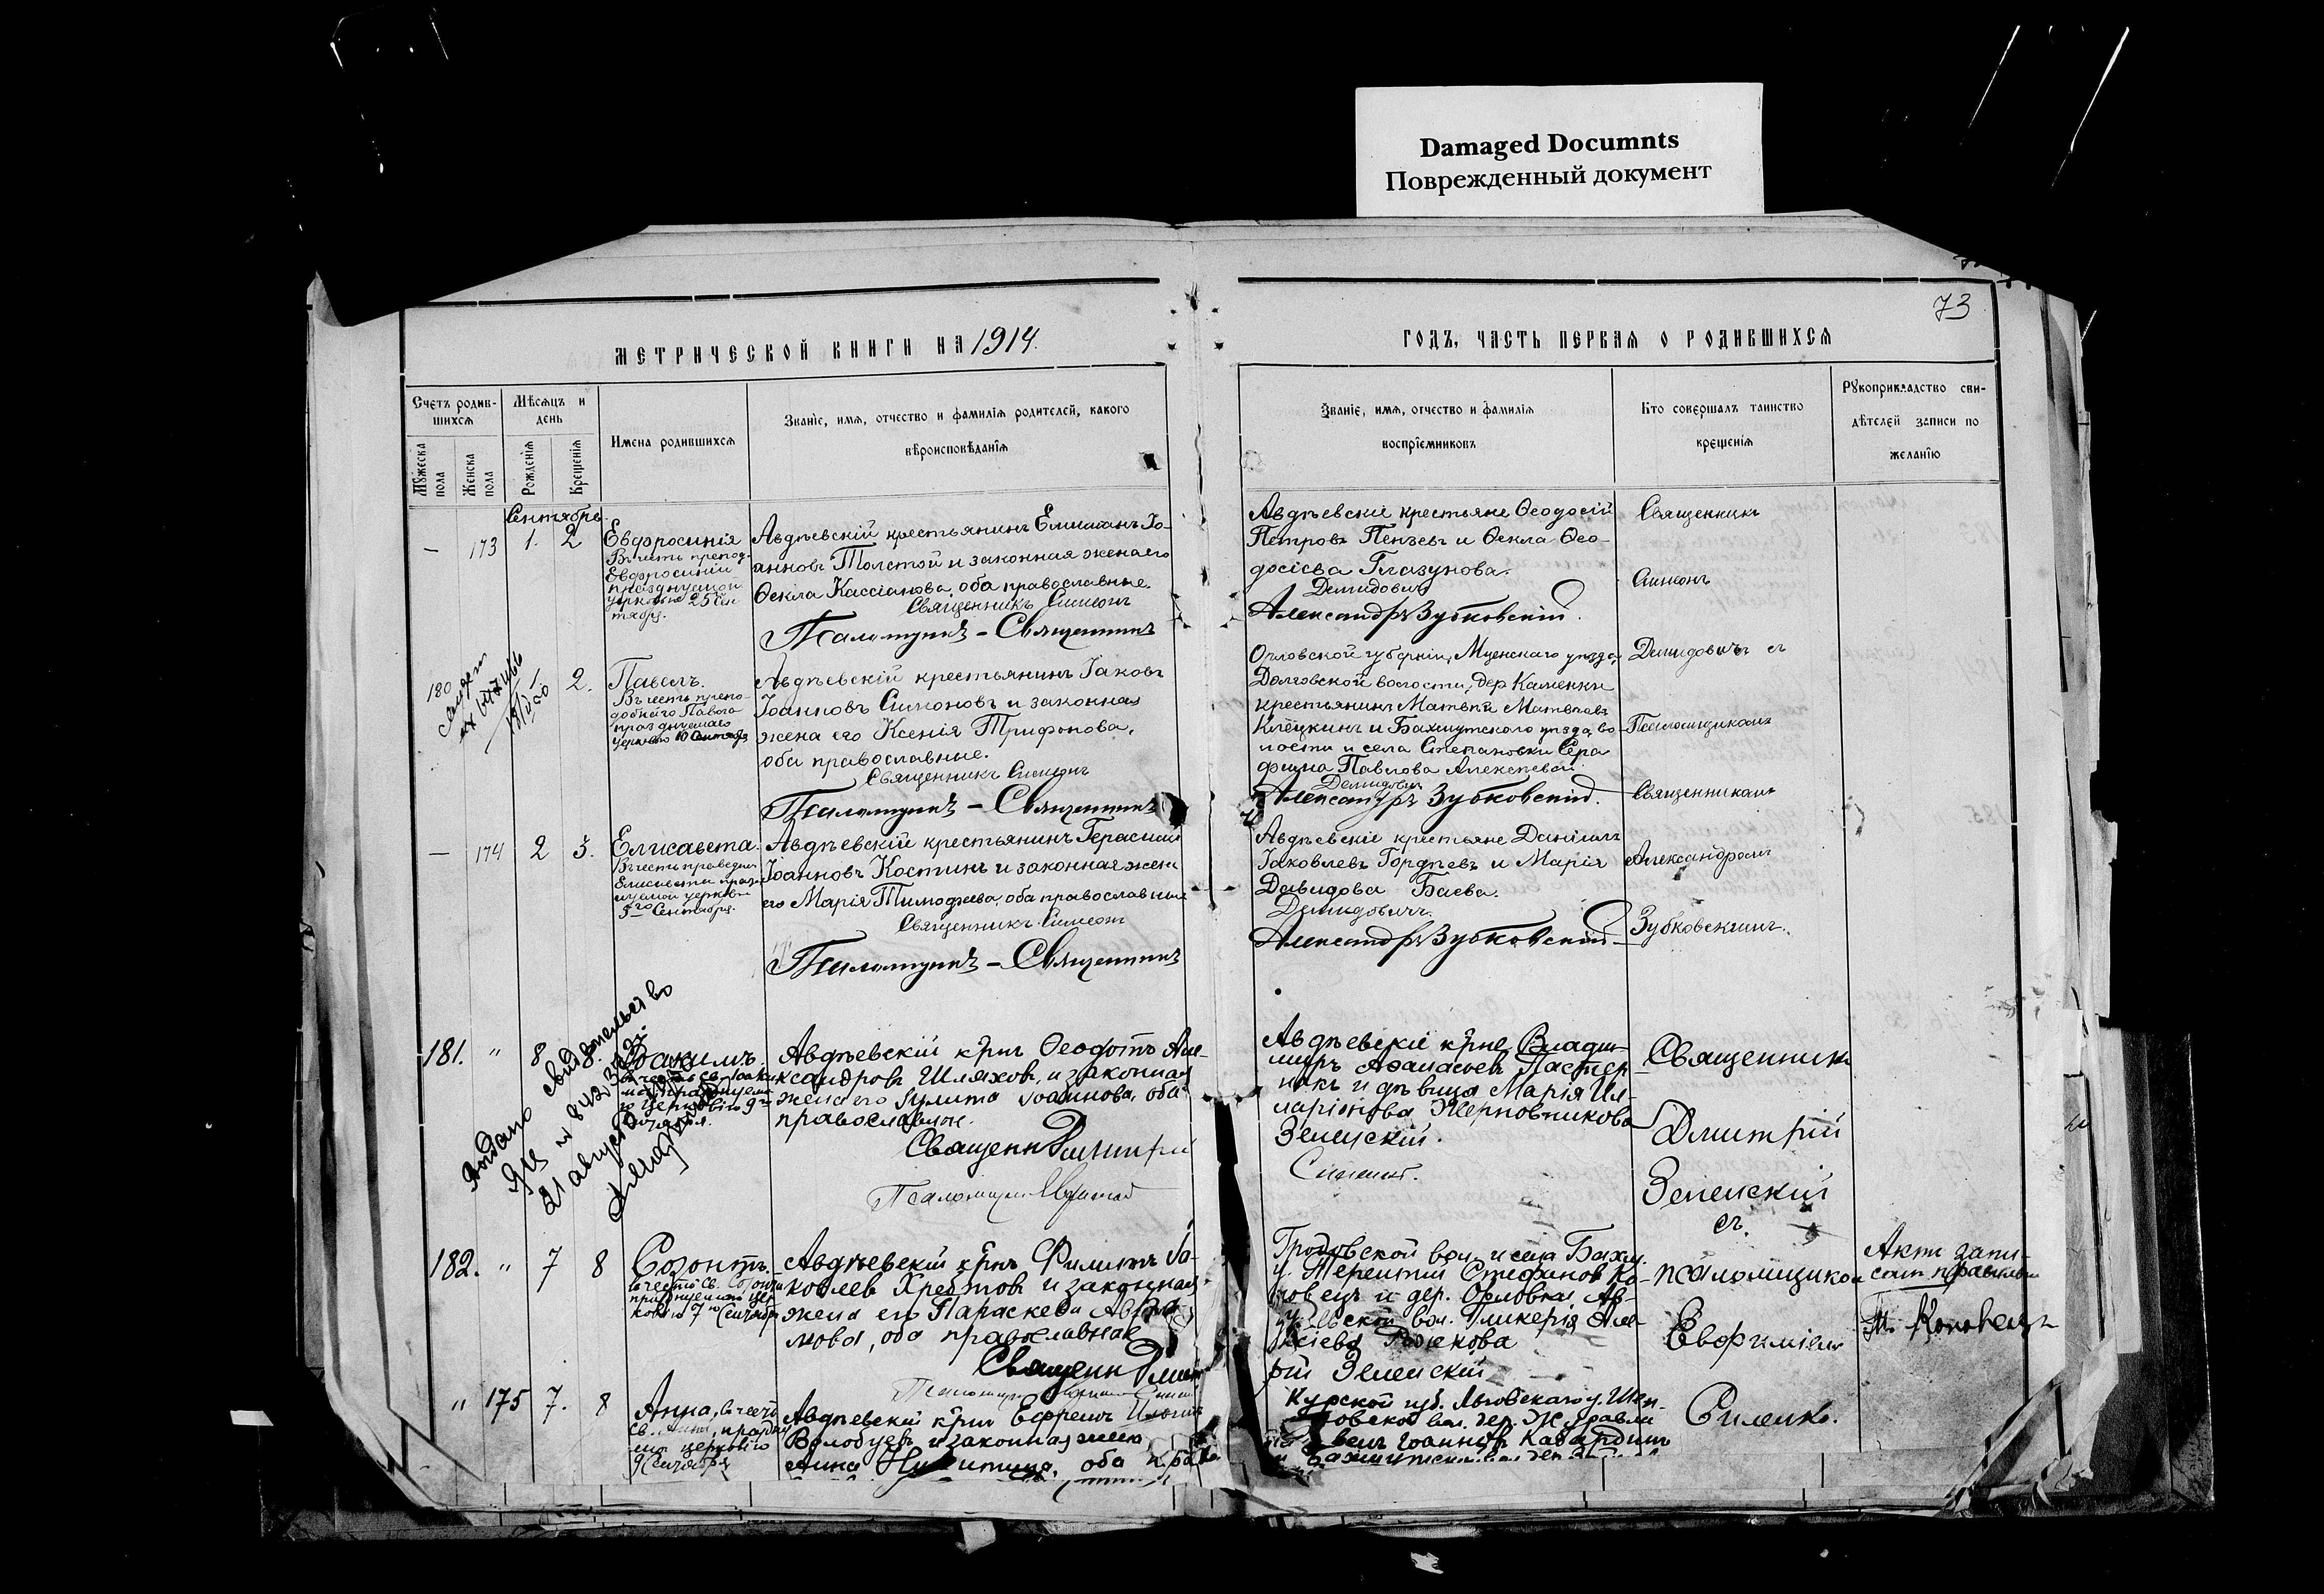 Damaged Documnts
Поврежденный документ
73
МЕТРИЧЕСКОЙ КНИГИ НА 1914.
ГОДЪ, ЧАСТЬ ПЕРВАЯ О РОДИВШИХСЯ
Счетъ родив-
шихся
Мужеска пола
Женска пола
Мѣсяцъ и
день
Рожденія
Крещенія
Имена родившихся
Званіе, имя, отчество и фамилія родителей, какого
вѣроисповѣданія
Званіе, имя, отчество и фамилія
воспріемниковъ
Кто совершалъ таинство
крещенія
Рукоприкладство сви-
дѣтелей записи по
желанію
Сентябрь
— 173 1. 2
Евфросинія
Въ честь препод.
Евфросиніи
празднуемой
церковью 25 Сен
тября.
Авдѣевскій крестьянинъ Іо-
анновъ Толстой и законная жена его
Ѳекла Кассіанова, оба православные.
Священникъ Симеонъ
Псаломщикъ – Священникъ
Авдѣевскіе крестьяне Ѳеодосій
Петровъ Пензевъ и Ѳекла Ѳео-
досіева Глазунова.
Демидовичъ
Александръ Зубковскій.
Священникъ
Симеонъ
180 1 2.
Павелъ.
Въ честь препо-
добнаго Павла
празднуемаго
церковью 10 Сентября
Авдѣевскій крестьянинъ Іаковъ
Іоанновъ Симоновъ и законная
жена его Ксенія Трифонова,
оба православные.
Священникъ Симеонъ
Псаломщикъ – Священникъ
Орловской губерніи, Мценскаго уѣзда,
Долговской волости, дер. Каменки
крестьянинъ Матвѣй Матвѣевъ
и Бахмутскаго уѣзда, во-
лости и села Степановки Сера
фима Павлова Алексѣева.
Демидовичъ
Александръ Зубковскій.
Демидовичъ съ
Псаломщикомъ
Священникомъ
— 174 2 3.
Елисавета.
Въ честь праведныя
Елисаветы празд-
нуемой церковью
5го Сентября.
Авдѣевскій крестьянинъ Герасимъ
Іоанновъ Костинъ и законная жена
его Марія Тимофеева, оба православные
Священникъ Симеонъ
Псаломщикъ – Священникъ
Авдѣевскіе крестьяне Даніилъ
Іаковлевъ Гордѣевъ и Марія
Давидова Баева.
Демидовичъ.
Александръ Зубковскій
Александромъ
Зубковскимъ.
Выдано свидетельство
21 августа
181. " 8 8
Іоакимъ.
Авдѣевскій крнъ Ѳеодотъ Але-
ксандровъ Шляховъ, и законная
жена его Іулита Іоаннова, оба
православные.
Священн Димитрій
Псаломщикъ Евфимій
Авдѣевскіе крне Влади-
миръ Аѳанасьев Пастер-
накъ и дѣвица Марія Ил-
ларіонова Жерновникова
Зеленскій.
Силенко.
Священникъ
Дмитрій
Зеленскій
съ
182. " 7 8
Созонтъ.
въ честь св. Созонта
празднуемаго цер
ковью 7го Сентября
Авдѣевскій крнъ Филиппъ Іа-
ковлев Хребтов и законная
жена его Параскева
оба православные
Священн Дмит
Гродовской вол. и села Бахм.
у. Терентій Стефановъ Ко-
новецъ и дер. Орловка Ав-
дѣевской вол. Гликерія Але-
ксіева
рій Зеленскій
псаломщиком
Евфиміемъ
Акт запи-
сан правильно
Т. Коновецъ
" 175 7. 8
Анна, въ честь
св. Анны, праздну
емой церковью
9 Сентября
Авдѣевскій крнъ Ефремъ
Волобуевъ и законная жена
Анна Никитина, оба прав
Курской губ. Льговскаго у.
вол. дер. Журавли
Іоаннов Кабардинъ
Силенко.